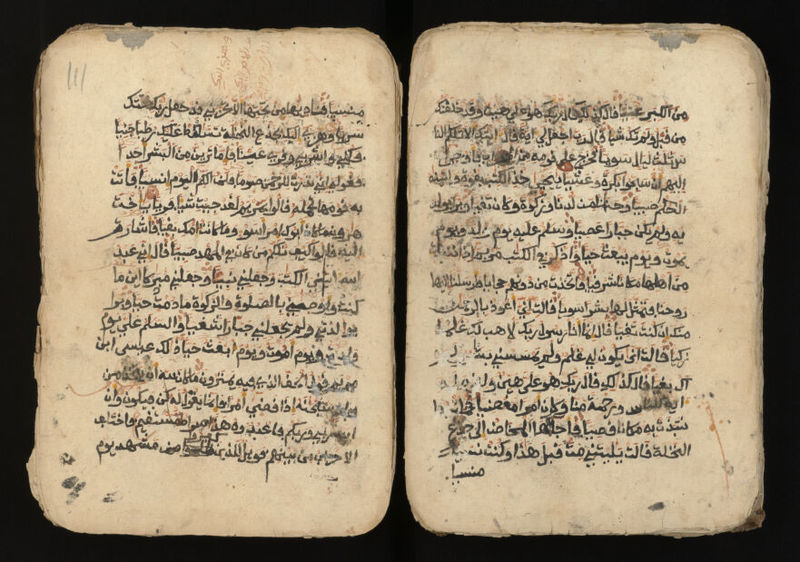 من الكبر عتيا قال كذلك قال ربك هو علي هين وقد خلقتك
من قبل ولم تك شيا قال رب اجعل لي اية قال ايتك الا تكلم النا
س ثلث ليال سويا فخرج على قومه من المحراب فاوحى
اليهم ان سبحوا بكرة وعشيا ييحيى خذ الكتب بقوة واتينه
الحكم صبيا وحنانا من لدنا وزكوة وكان تقيا وبرا بولد
يه ولم يكن جبارا عصيا وسلم عليه يوم ولد ويوم
يموت ويوم يبعث حيا واذكر في الكتب مريم اذ انتبذت
من اهلها مكانا شرقيا فاتخذت من دونهم حجابا فارسلنا اليها
روحنا فتمثل لها بشرا سويا قالت اني اعوذ بالرحمن
منك ان كنت تقيا قال انما انا رسول ربك لاهب لك غلما
زكيا قالت انى يكون لي غلم ولم يمسسني بشر ولم
اك بغيا قال كذلك قال ربك هو علي هين ولنجعله
اية للناس ورحمة منا وكان امرا مقضيا فحملته فا
نتبذت به مكانا قصيا فاجاها المخاض الى جذع
النخلة قالت يليتني مت قبل هذا وكنت نسيا
منسيا
منسيا فناديها من تحتها الا تحزني قد جعل ربك تحتك
سريا وهزي اليك بجذع النخلة تسقط عليك رطبا جنيا
فكلي واشربي وقري عينا فاما ترين من البشر احدا
فقولي اني نذرت للرحمن صوما فلن اكلم اليوم انسيا فاتت
به قومها تحمله قالوا يمريم لقد جيت شيا فريا ياخت
هرون ما كان ابوك امرا سوء وما كانت امك بغيا فاشارت
اليه قالوا كيف نكلم من كان في المهد صبيا قال اني عبد
الله اتيني الكتب وجعلني نبيا وجعلني مبركا اين ما
كنت واوصيني بالصلوة والزكوة ما دمت حيا وبرا
بولدتي ولم يجعلني جبارا شقيا والسلم علي يوم
ولدت ويوم اموت ويوم ابعث حيا ذلك عيسى ابن
مريم قول الحق الذي فيه يمترون ما كان لله ان يتخذ من
ولد سبحنه اذا قضى امرا فانما يقول له كن فيكون وان
الله ربي وربكم فاعبدوه هذا صرط مستقيم فاختلف
الاحزاب من بينهم فويل للذين كفروا من مشهد يوم